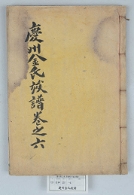 慶州金氏族譜卷之六